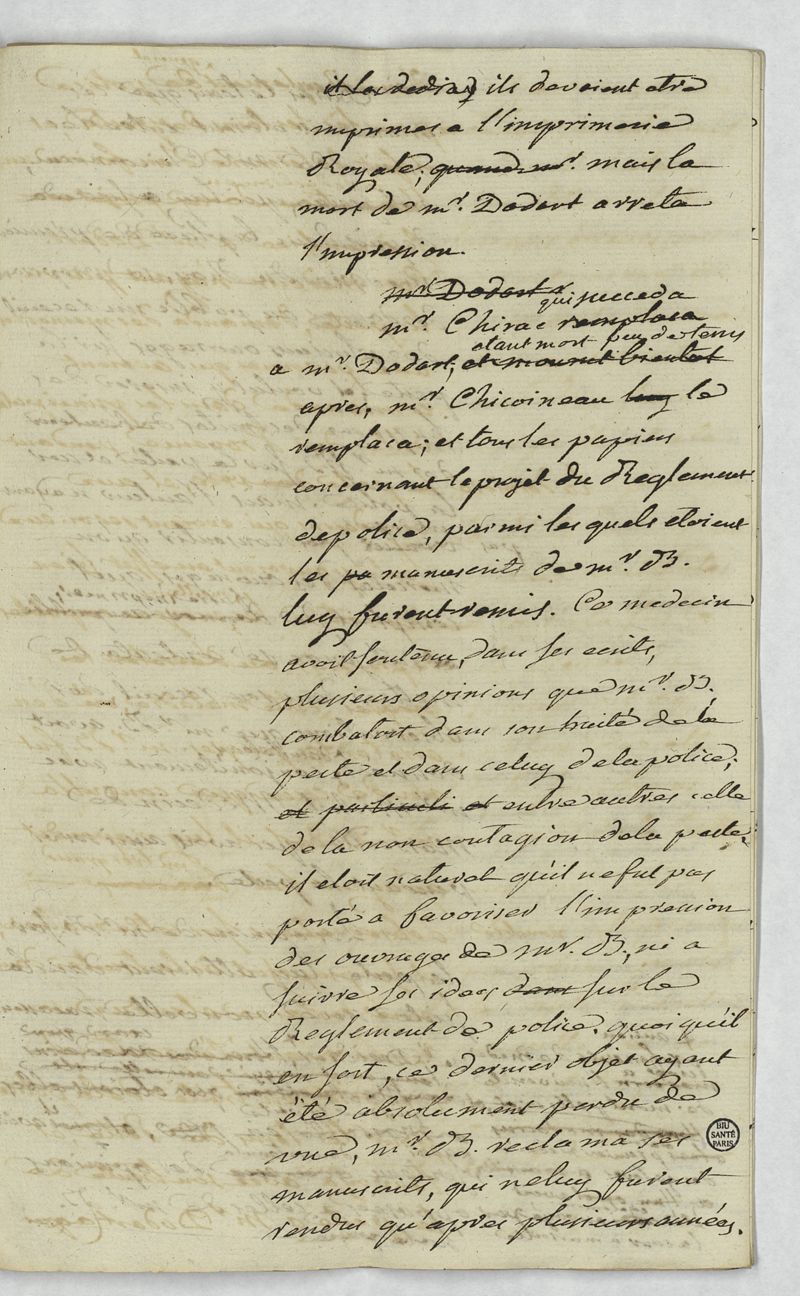 il les dedia, ils devoient etre
imprimes a l'imprimerie
Royale; quand mr. mais la
mort de mr. Dodart arreta
l'impression.
mr. Dodart
qui succeda
mr. Chirac remplaca
etant mort peu de tems
a mr. Dodart, et mourut bientot
apres, mr. Chicoineau luy le
remplaca; et tous les papiers
concernant le projet du Reglement
de police, parmi les quels etoient
les pa manuscrits de mr. B.
luy furent remis. Ce medecin
avoit soutenu, dans ses ecrits,
plusieurs opinions que mr. B.
combatoit dans son traité de la
peste et dans celuy de la police;
et particuli et entre autres celle
de la non contagion de la peste,
il etoit naturel qu'il ne fut pas
porté a favoriser l'impression
des ouvrages de mr. B, ni a
suivre ses idees dans sur le
Reglement de police. quoi qu'il
en soit, ce dernier objet ayant
été absolument perdu de
vue, mr. B. reclama ses
manuscrits, qui ne luy furent
rendus qu'apres plusieurs années.
BIU
SANTÉ
PARIS